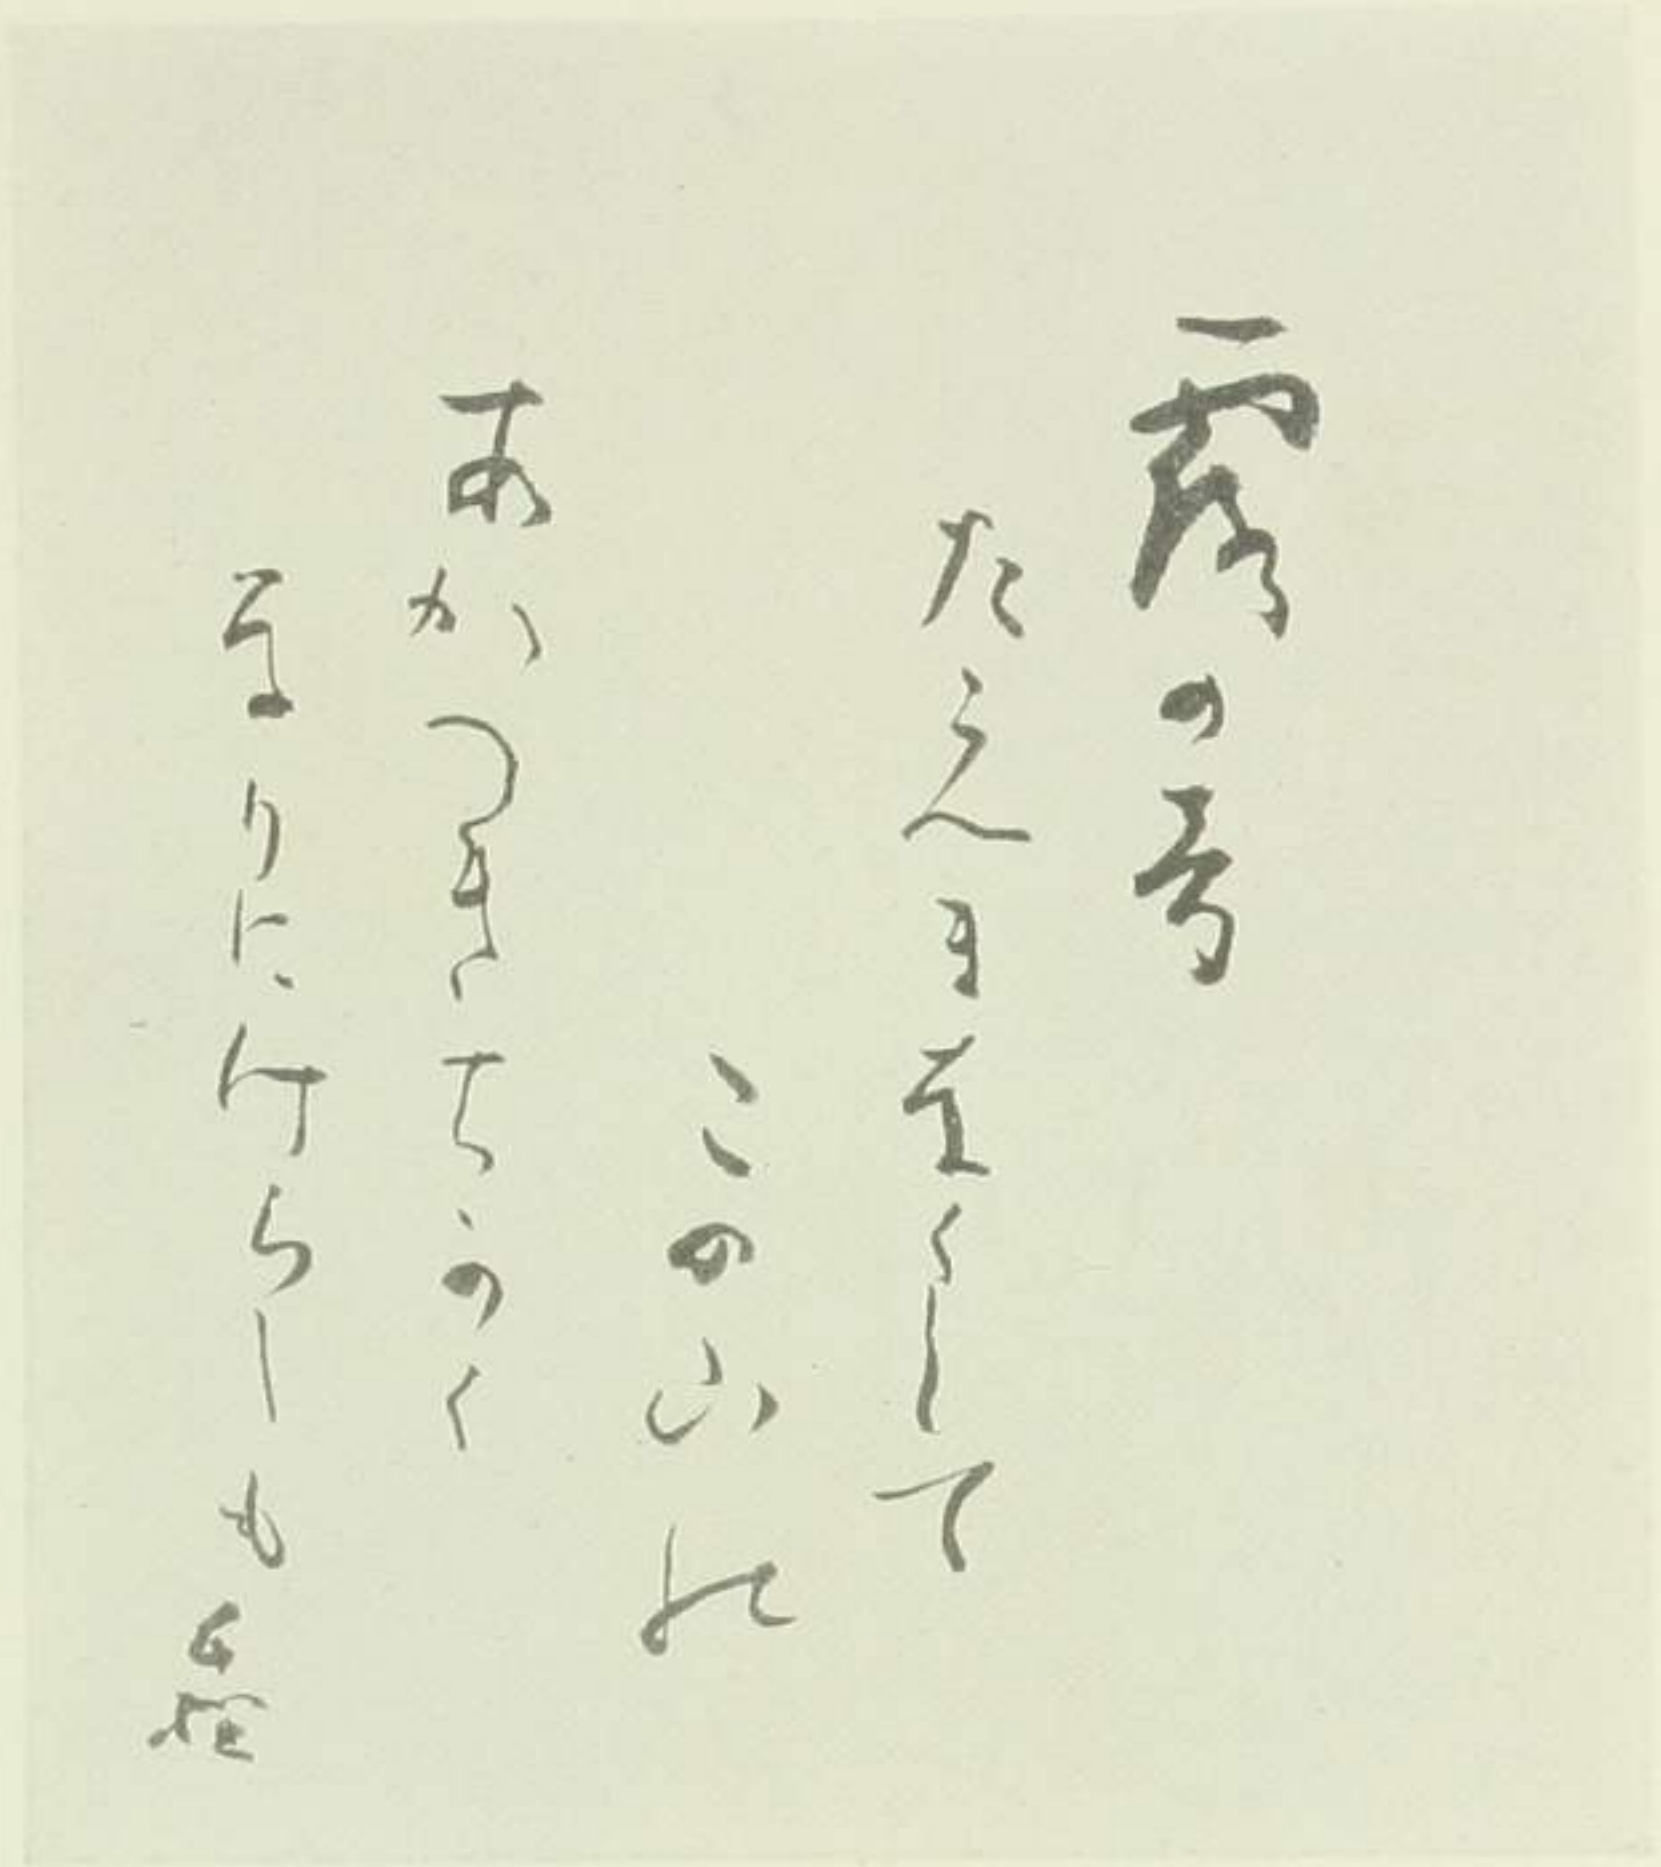 露の音
たえまなくして
この山の
あかつきちかく
なりにけらしも